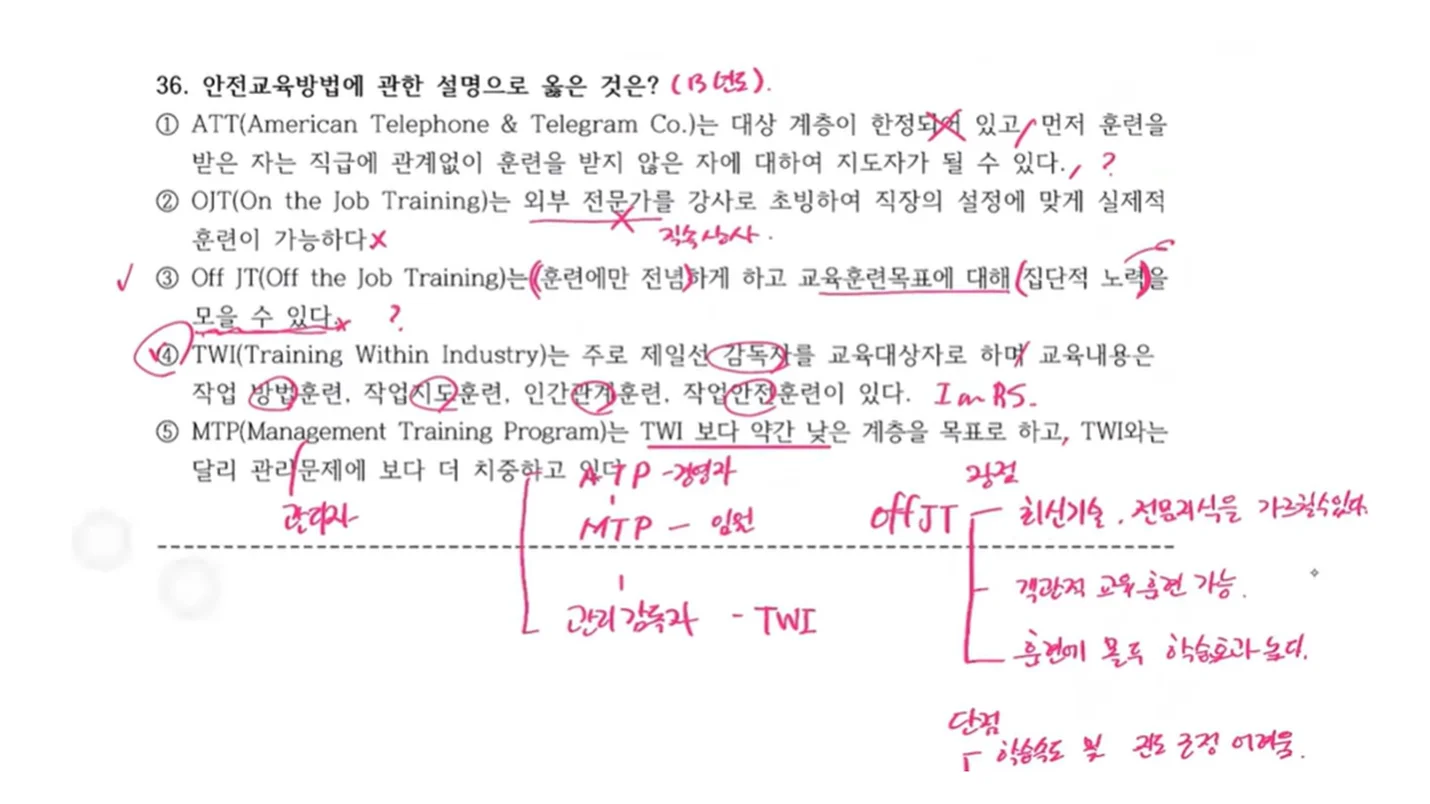 36. 안전교육방법에 관한 설명으로 옳은 것은? (13년도).
① ATT(American Telephone & Telegram Co.)는 대상 계층이 한정되어 있고 먼저 훈련을
받은 자는 직급에 관계없이 훈련을 받지 않은 자에 대하여 지도자가 될 수 있다. ?
② OJT(On the Job Training)는 외부 전문가를 강사로 초빙하여 직장의 설정에 맞게 실제적
훈련이 가능하다
직속상사.
③ Off JT(Off the Job Training)는 훈련에만 전념하게 하고 교육훈련목표에 대해 집단적 노력을
모을 수 있다. ?
④ TWI(Training Within Industry)는 주로 제일선 감독자를 교육대상자로 하며 교육내용은
작업 방법훈련, 작업지도훈련, 인간관계훈련, 작업안전훈련이 있다.
⑤ MTP(Management Training Program)는 TWI 보다 약간 낮은 계층을 목표로 하고, TWI와는
달리 관리문제에 보다 더 치중하고 있다
관리자
ATP - 경영자
MTP - 임원
관리감독자 - TWI
장점
off JT
최신기술, 전문지식을 가르칠수있다.
객관적 교육훈련 가능.
훈련에 몰두 학습효과높다.
단점
학습속도 및 조정 어려움.